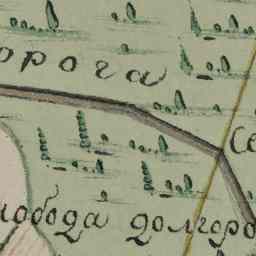 орога
Се
лобода долгоро